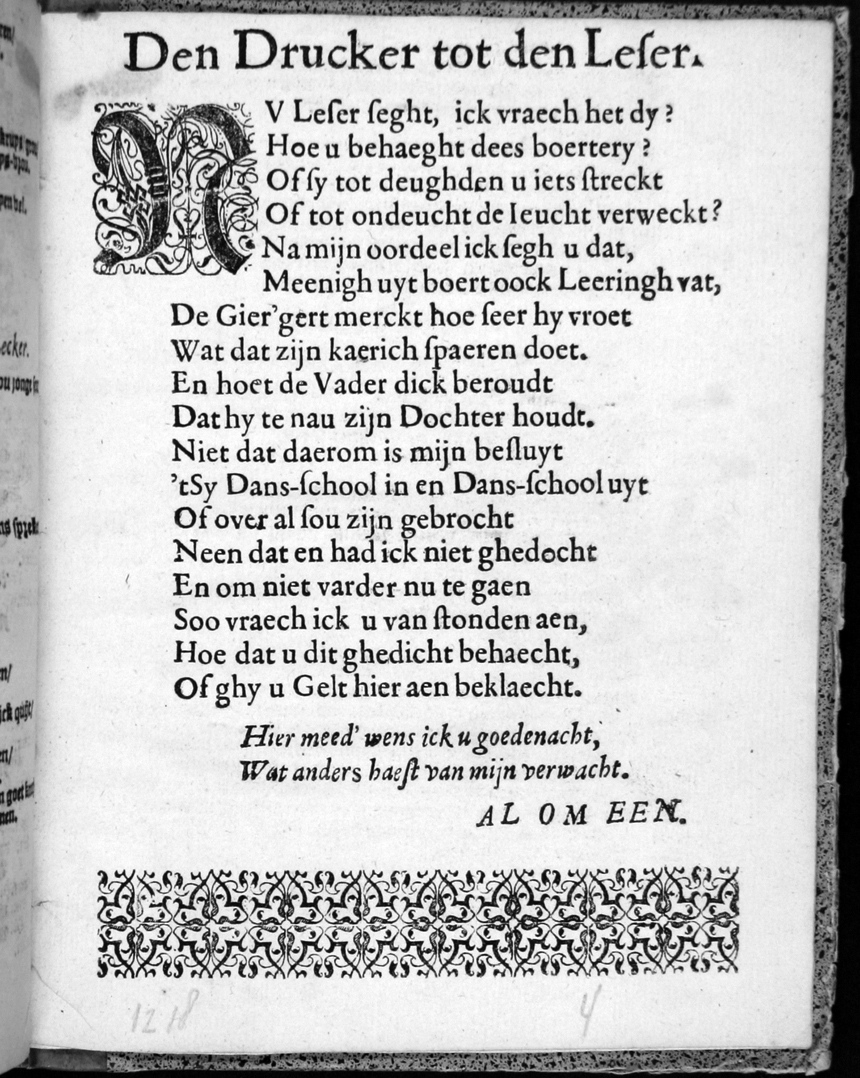 Den Drucker tot den Leſer.
NV Leſer ſeght, ick vraech het dy?
Hoe u behaeght dees boertery?
Of ſy tot deughden u iets ſtreckt
Of tot ondeucht de Ieucht verweckt?
Na mijn oordeel ick ſegh u dat,
Meenigh uyt boert oock Leeringh vat,
De Gier'gert merckt hoe ſeer hy vroet
Wat dat zijn kaerich ſpaeren doet.
En hoet de Vader dick beroudt
Dat hy te nau zijn Dochter houdt.
Niet dat daerom is mijn beſluyt
'tSy Dans-ſchool in en Dans-ſchool uyt
Of over al ſou zijn gebrocht
Neen dat en had ick niet ghedocht
En om niet varder nu te gaen
Soo vraech ick u van ſtonden aen,
Hoe dat u dit ghedicht behaecht,
Of ghy u Gelt hier aen beklaecht.
Hier meed' wens ick u goedenacht,
Wat anders haeſt van mijn verwacht.
AL OM EEN.
12 18
4